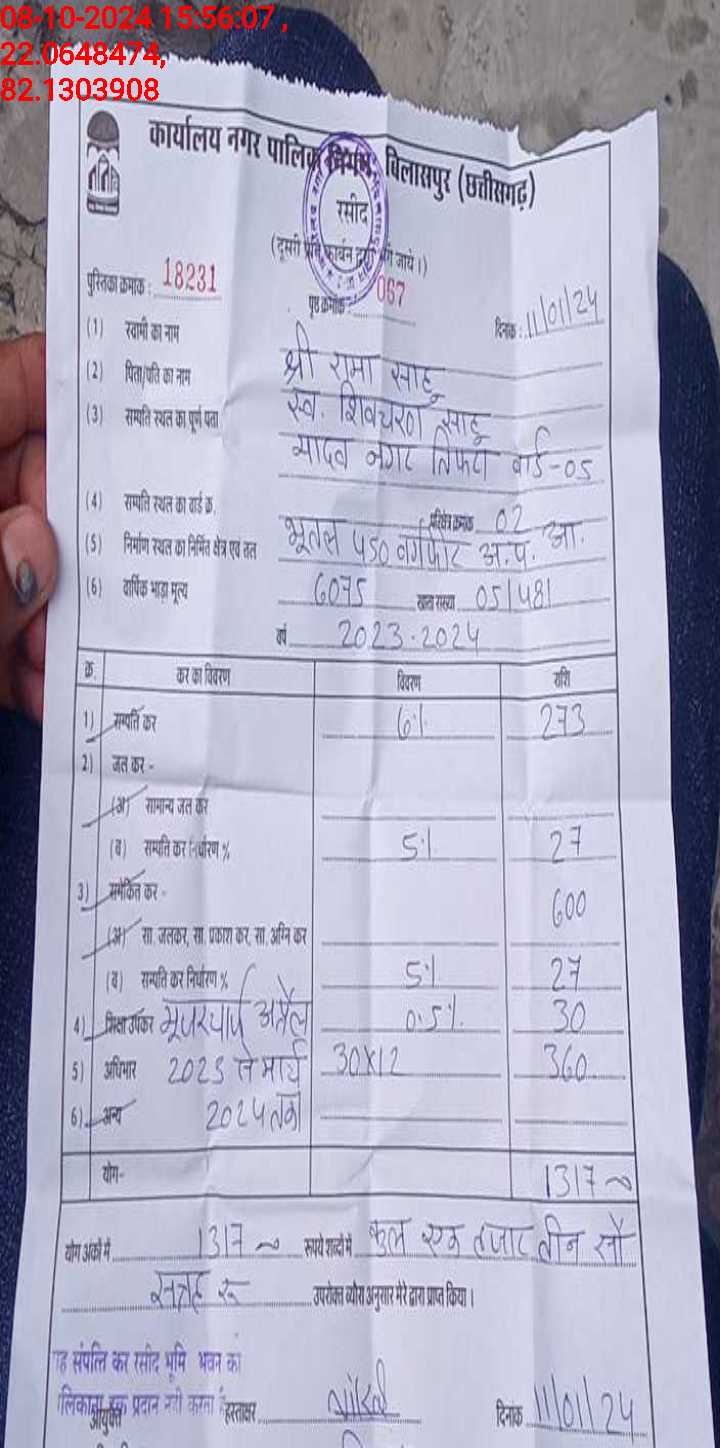 08-10-2024 15:56:07 ,
22.0648474,
82.1303908
कार्यालय नगर पालिक निगम, बिलासपुर (छत्तीसगढ़)
रसीद
(दूसरी प्रति कार्बन द्वारा की जाये।)
पुस्तिका क्रमांक : 18231 पृष्ठ क्रमांक : 067 दिनांक : 11/01/24
(1) स्वामी का नाम श्री रामा साहू
(2) पिता/पति का नाम स्व. शिवचरण साहू
(3) सम्पति स्थल का पूर्ण पता यादव नगर तिफरा वार्ड-05
(4) सम्पति स्थल का वार्ड क्र. परिक्षेत्र क्रमांक 02
(5) निर्माण स्थल का निर्मित क्षेत्र एवं तल भूतल 450 वर्गफीट अ.प. आ.
(6) वार्षिक भाड़ा मूल्य 6075 खाता संख्या 05/481
वर्ष 2023-2024
क्र. कर का विवरण विवरण राशि
1) सम्पति कर 6% 273
2) जल कर -
(अ) सामान्य जल कर
(ब) सम्पति कर निर्धारण % 5% 27
3) समेकित कर - 600
(अ) सा. जलकर, सा. प्रकाश कर, सा. अग्नि कर
(ब) सम्पति कर निर्धारण % 5% 27
4) शिक्षा उपकर 0.5% 30
5) अधिभार 2023 से मार्च 30x12 360
6) अन्य 2024 तक
योग- 1317
योग अंकों में 1317 रूपये शब्दों में कुल एक हजार तीन सौ
सत्रह रू उपरोक्त ब्यौरा अनुसार मेरे द्वारा प्राप्त किया।
यह संपत्ति कर रसीद भूमि भवन का
हक प्रदान नही करता है
आयुक्त हस्ताक्षर दिनांक 11/01/24